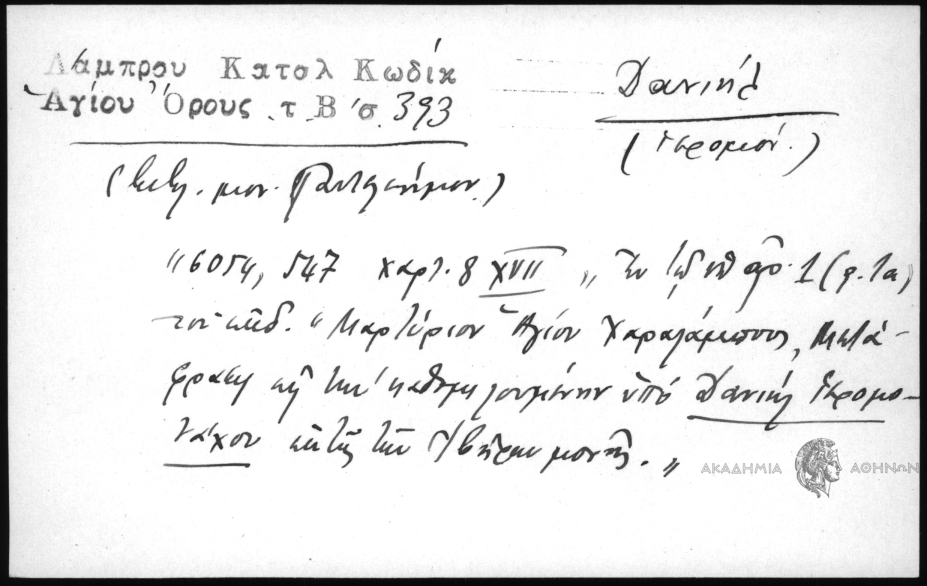 Λάμπρου Κατολ Κωδίκ
Ἁγίου Ὄρους τ Β' σ 393
Δανιήλ
(ἱερομόν.)
(βιβλ. μον. Παντελεήμων.)
"6054, 547 χαρτ. 8 XVII " 1 (φ. 1α)
τοῦ κώδ. "Μαρτύριον Ἁγίου Χαραλάμπους, Μετά-
φρασις εἰς τὴν καθομιλουμένην ὑπὸ Δανιὴλ ἱερομο-
νάχου ἐκ τῆς τῶν Ἰβήρων μονῆς."
ΑΚΑΔΗΜΙΑ ΑΘΗΝΩΝ